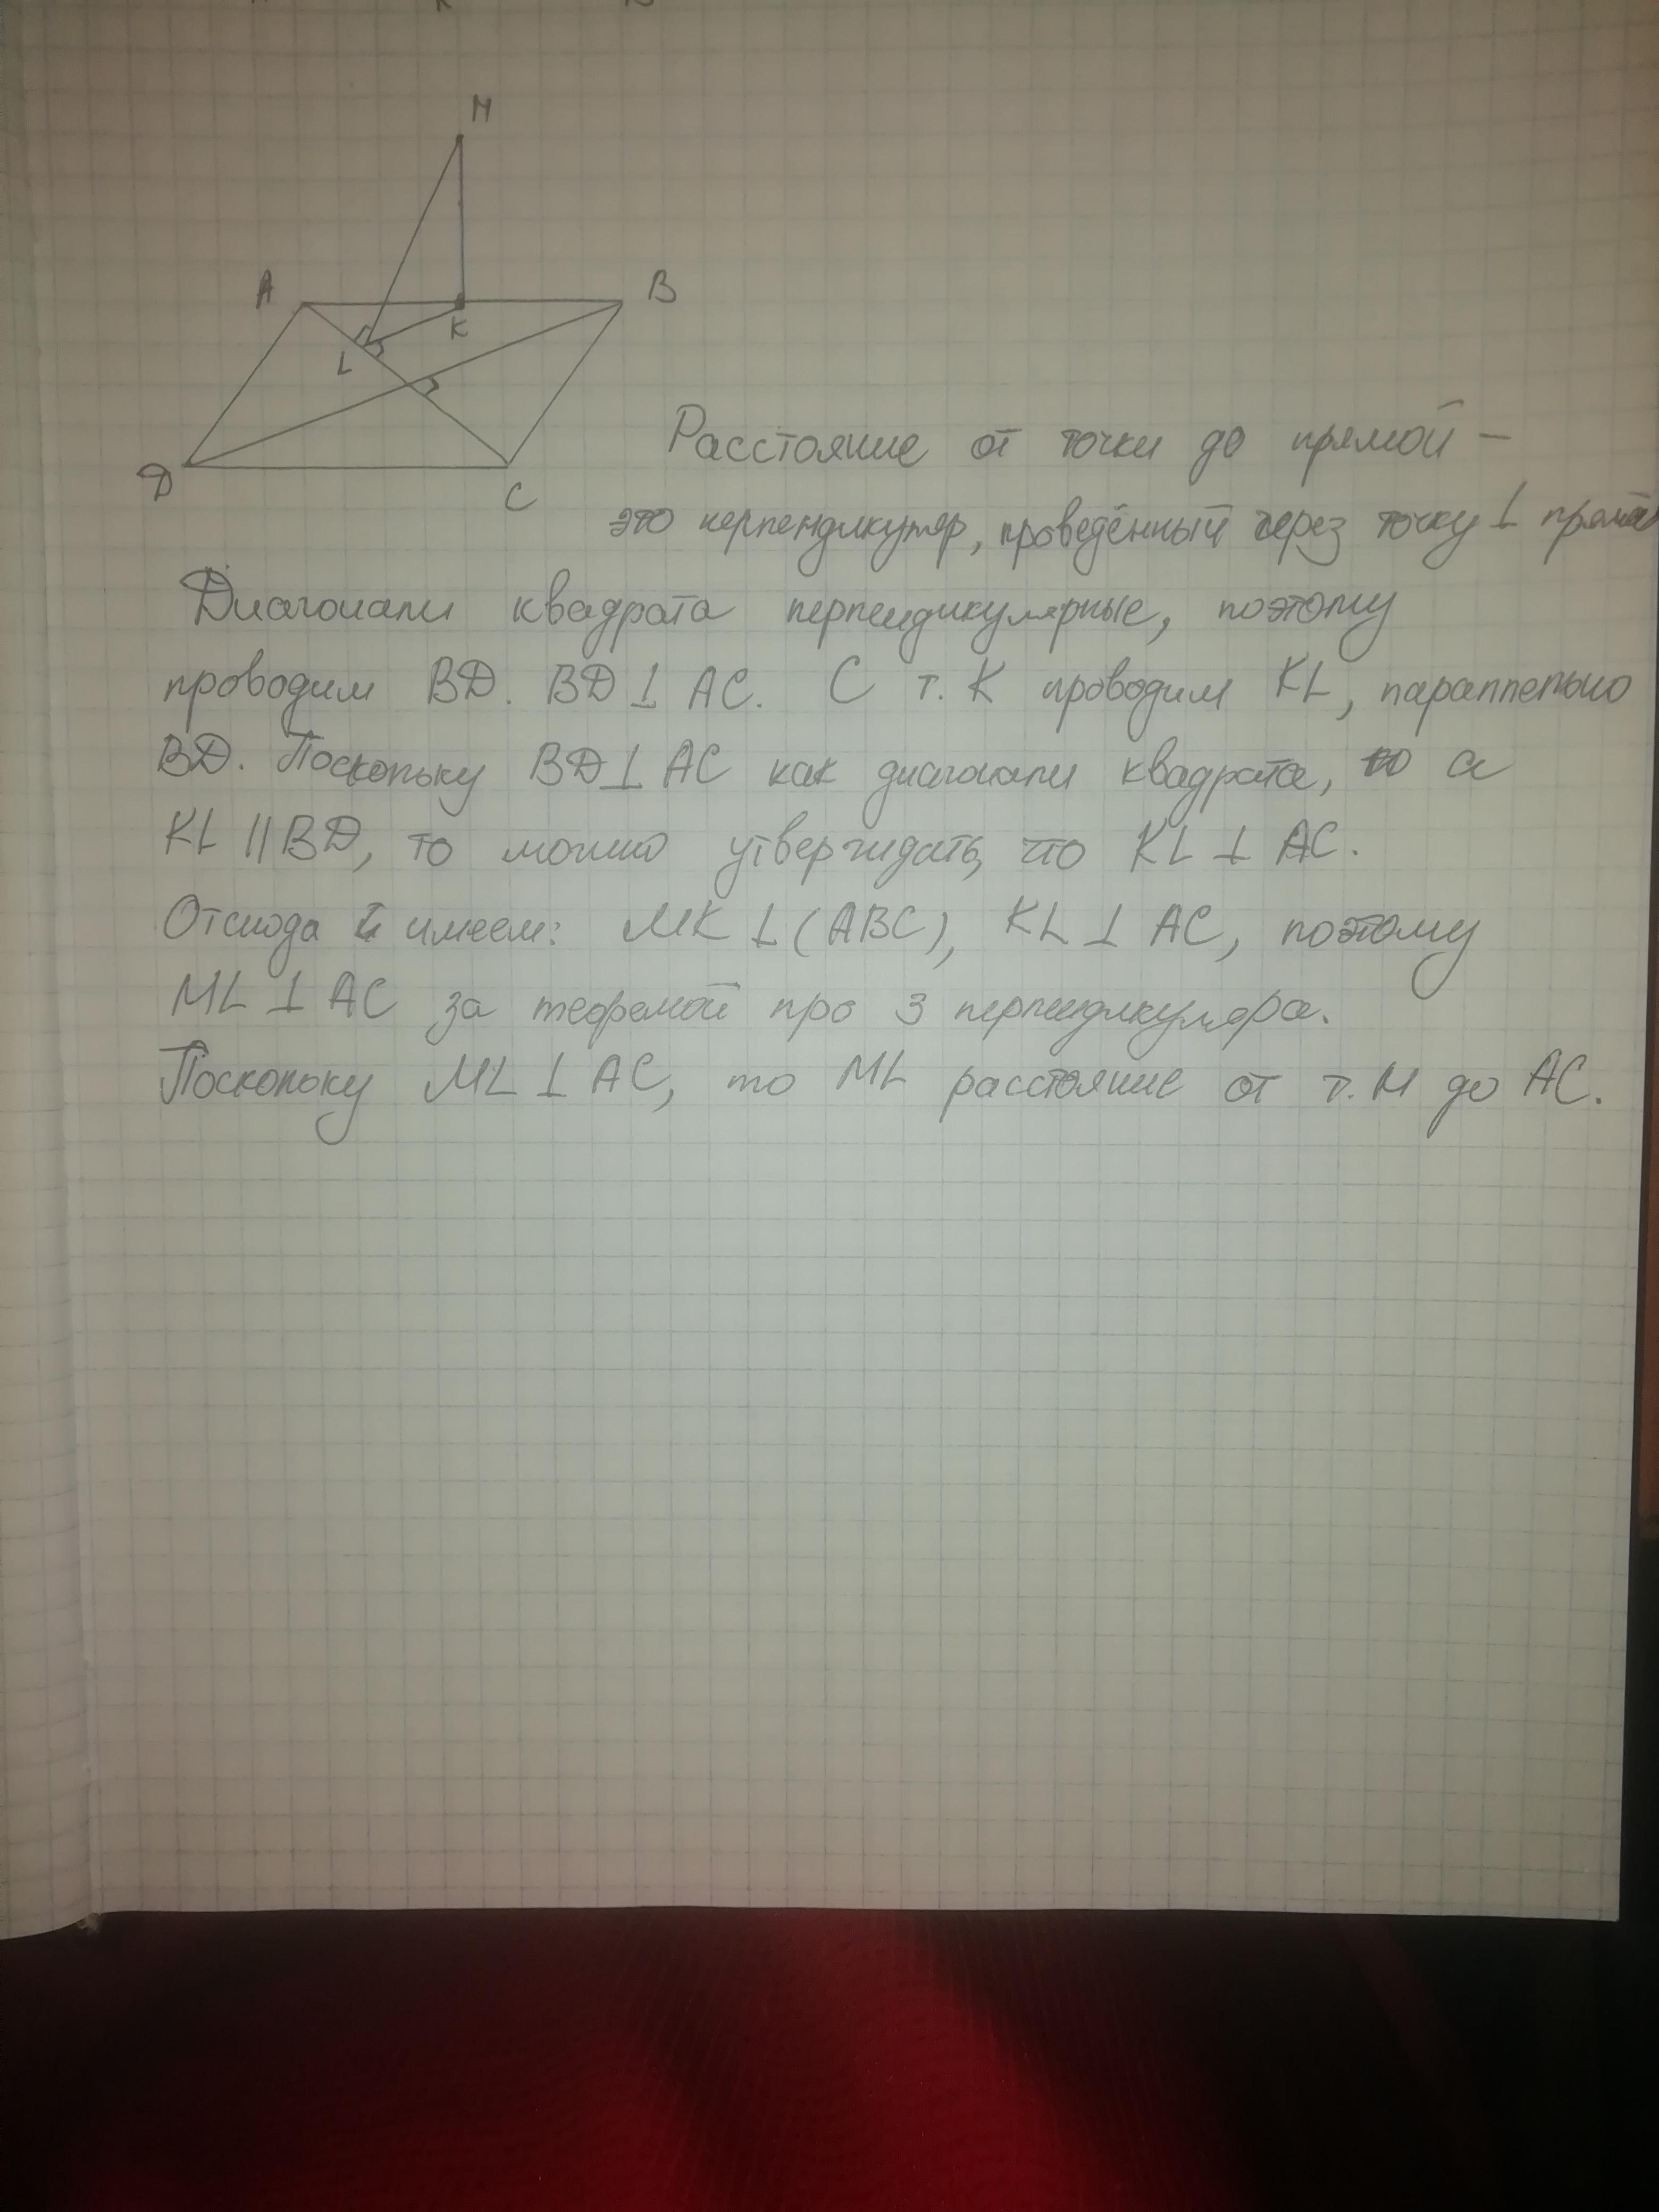 M
A
B
K
L
D
C
Расстояние от точки до прямой -
это перпендикуляр, проведённый через точку ⊥ прямой
Диагонали квадрата перпендикулярные, поэтому
проводим BD. BD ⊥ AC. С т. K проводим KL, параллельно
BD. Поскольку BD ⊥ AC как диагонали квадрата, а
KL || BD, то можно утверждать, что KL ⊥ AC.
Отсюда имеем: MK ⊥ (ABC), KL ⊥ AC, поэтому
ML ⊥ AC за теоремой про 3 перпендикуляра.
Поскольку ML ⊥ AC, то ML расстояние от т. M до AC.